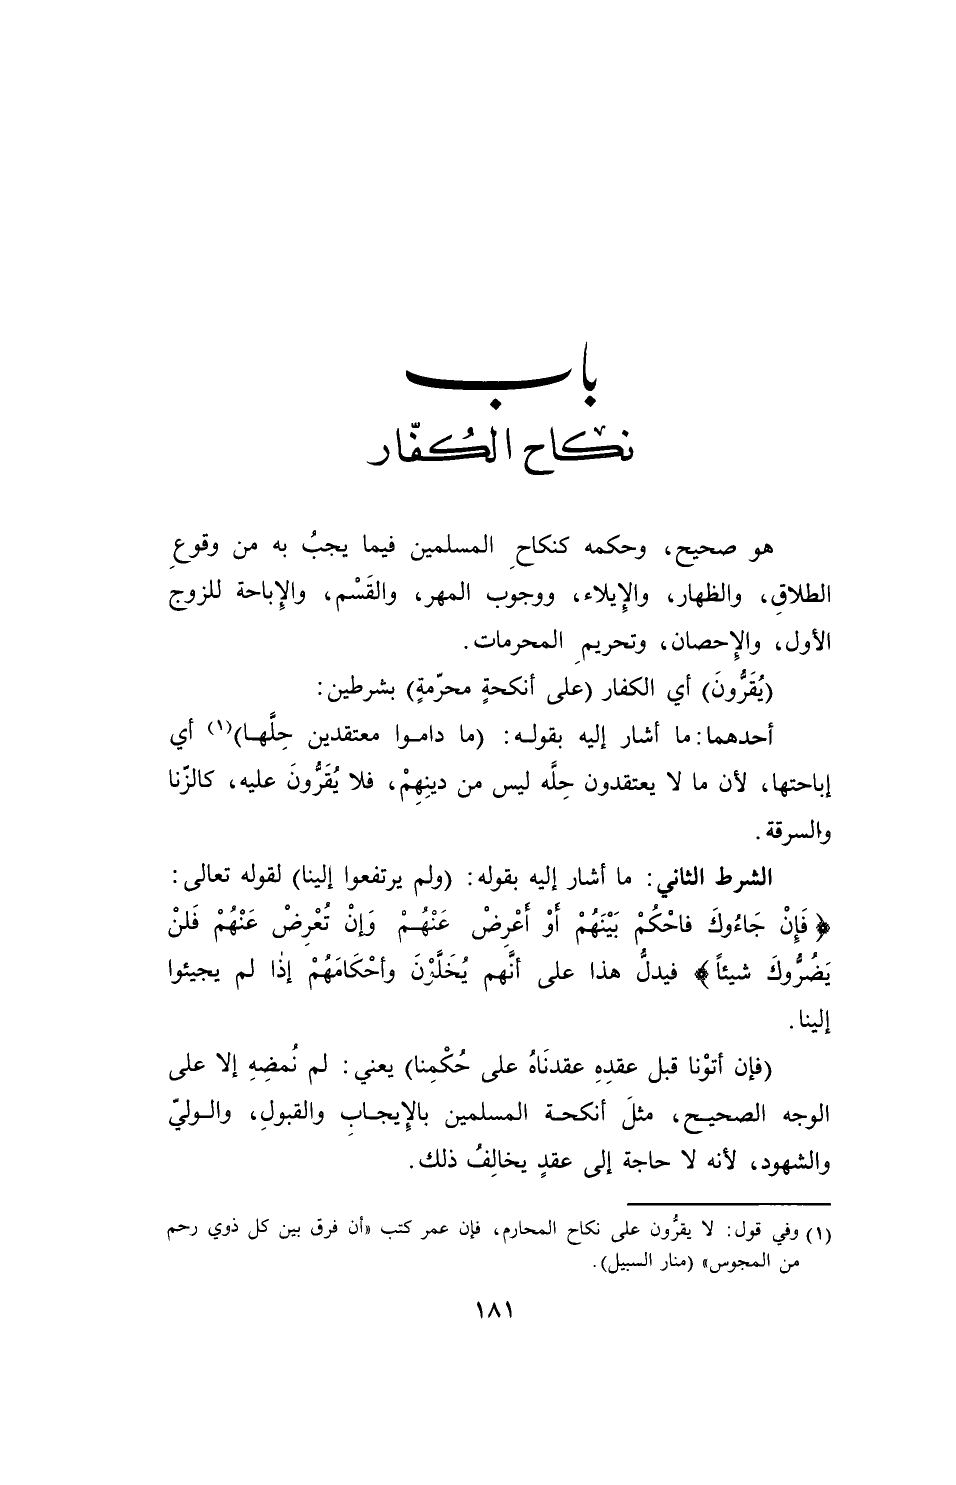 باب
نكاح الكُفّار
هو صحيح، وحكمه كنكاحِ المسلمين فيما يجبُ به من وقوعِ
الطلاقِ، والظهار، والإيلاء، ووجوب المهر، والقَسْم، والإباحة للزوج
الأول، والإحصان، وتحريمِ المحرمات.
(يُقَرُّونَ) أي الكفار (على أنكحةٍ محرّمةٍ) بشرطين:
أحدهما: ما أشار إليه بقوله: (ما داموا معتقدين حِلَّها)(١) أي
إباحتها، لأن ما لا يعتقدون حِلَّه ليس من دينِهِمْ، فلا يُقَرُّونَ عليه، كالزّنا
والسرقة.
الشرط الثاني: ما أشار إليه بقوله: (ولم يرتفعوا إلينا) لقوله تعالى:
﴿فَإِنْ جَاءُوكَ فاحْكُمْ بَيْنَهُمْ أَوْ أَعْرِضْ عَنْهُمْ وَإنْ تُعْرِضْ عَنْهُمْ فَلنْ
يَضُرُّوكَ شيئاً﴾ فيدلُّ هذا على أنَّهم يُخَلَّوْنَ وأحْكَامَهُمْ إذَا لم يجيئوا
إلينا.
(فإن أتوْنا قبل عقدِهِ عقدنَاهُ على حُكْمِنا) يعني: لم نُمضِهِ إلا على
الوجه الصحيح، مثلَ أنكحة المسلمين بالإيجابِ والقبولِ، والوليّ
والشهود، لأنه لا حاجة إلى عقدٍ يخالِفُ ذلك.
(١) وفي قول: لا يقرُّون على نكاح المحارم، فإن عمر كتب «أن فرق بين كل ذوي رحم
من المجوس» (منار السبيل).
١٨١